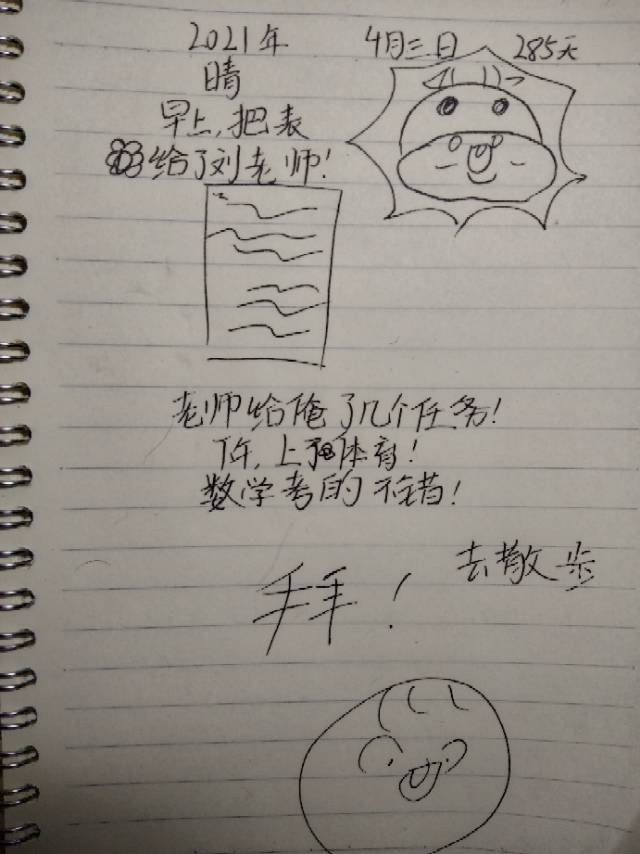 2021年 4月三日 285天
晴
早上,把表
给了刘老师!
老师给俺了几个任务!
下午,上了体育!
数学考的不错!
去散步
拜!